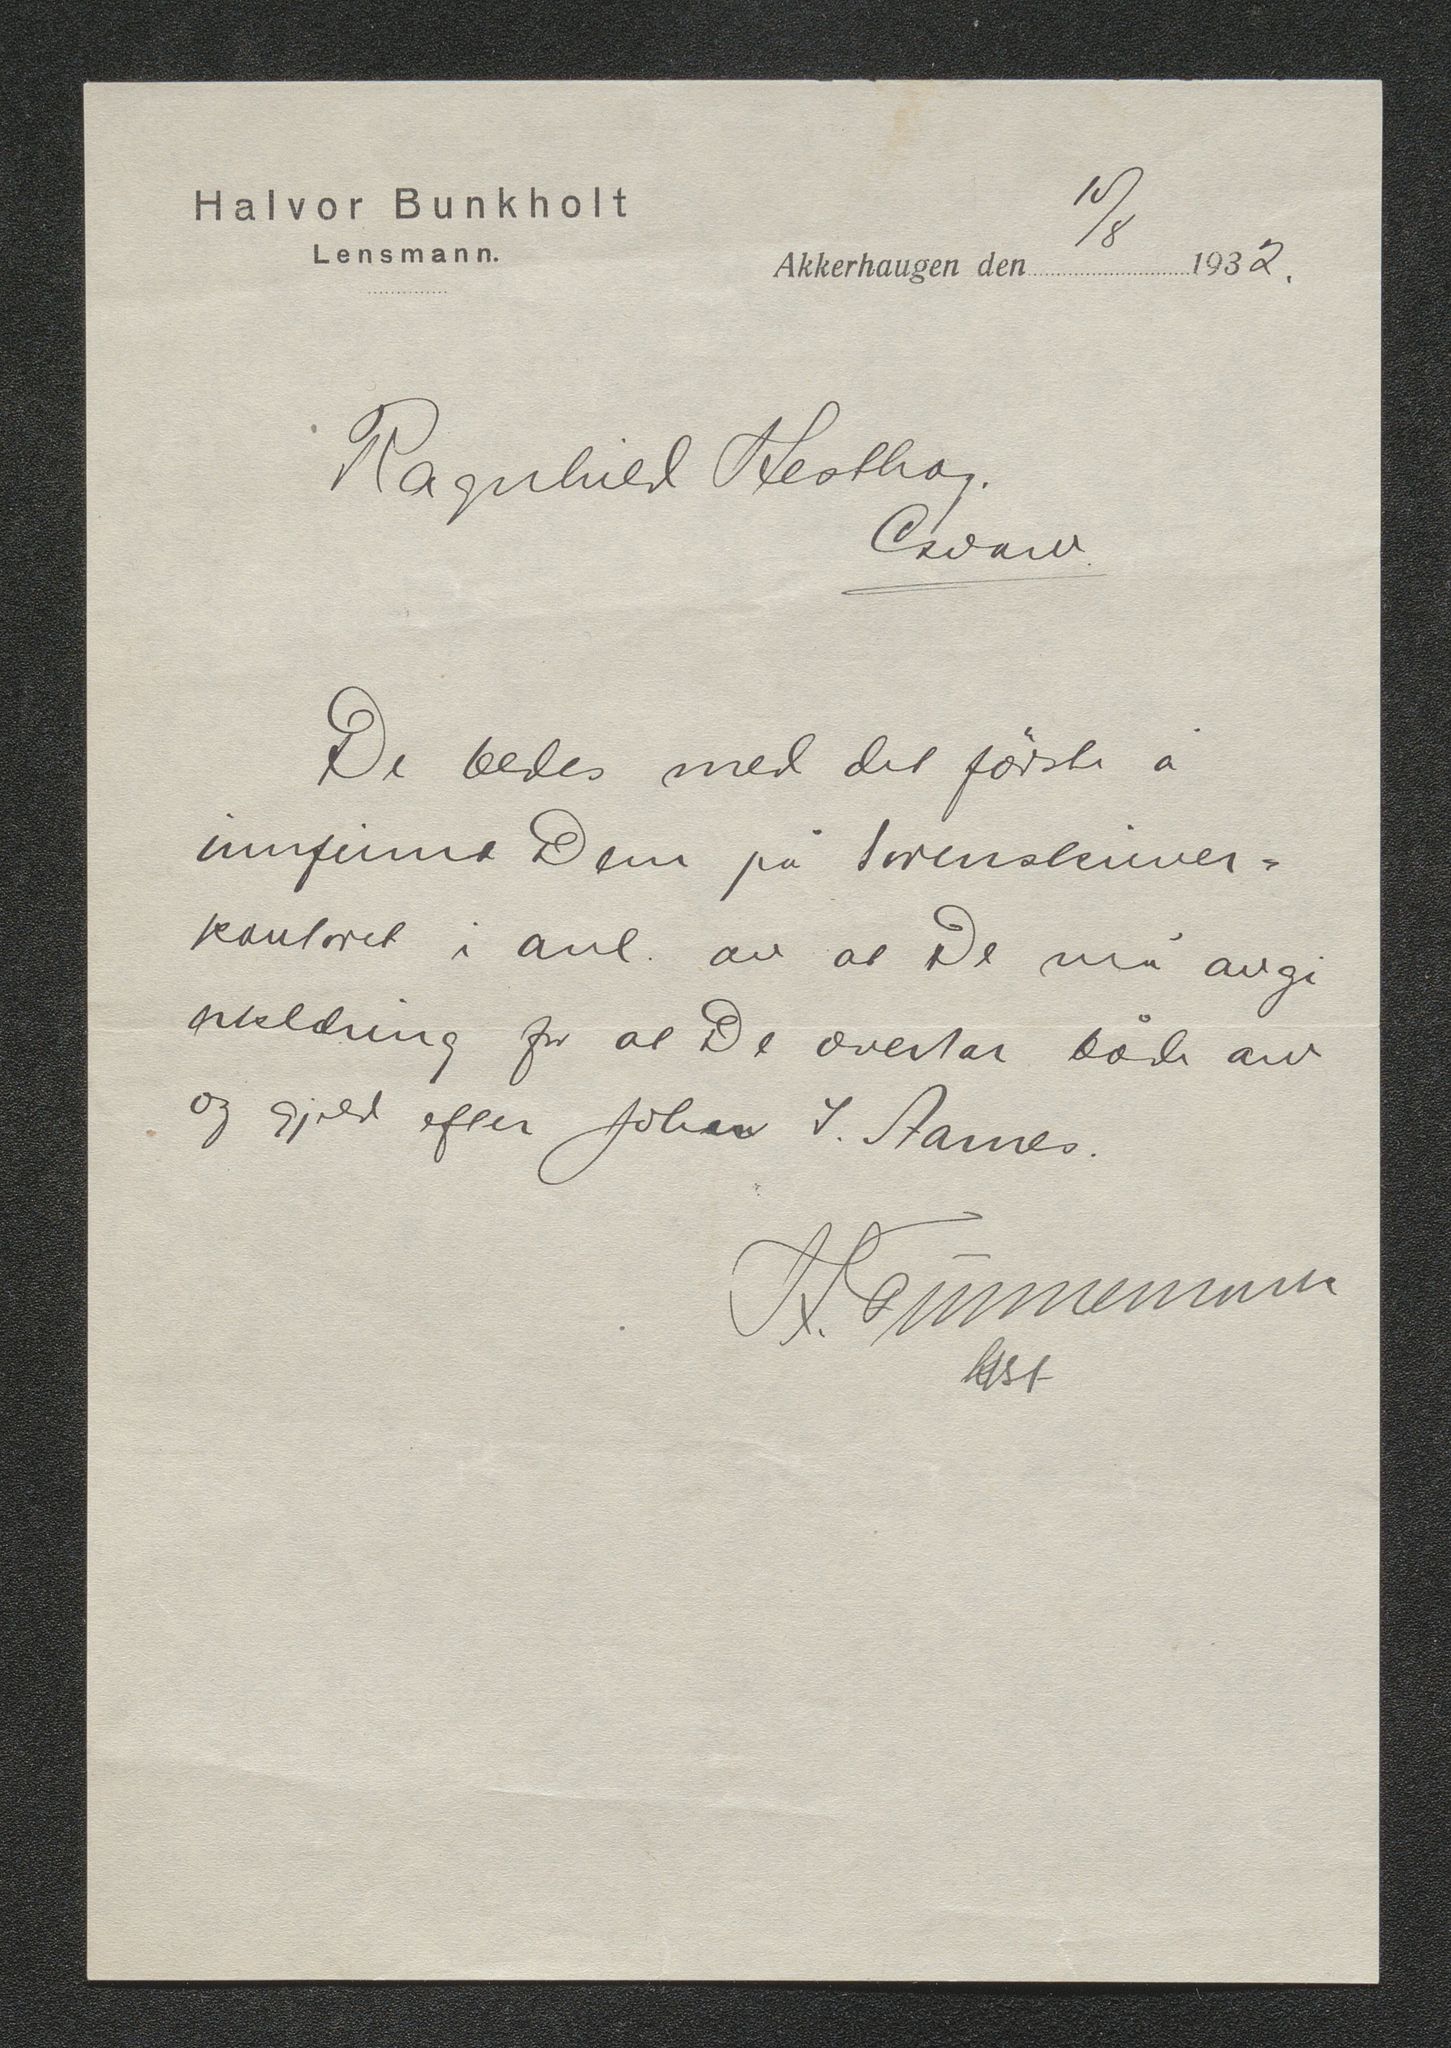 Halvor Bunkholt
Lensmann.
Akkerhaugen den 10/8 1932.
Ragnhild Hesthag.
De bedes med det første å
innfinne Dem på sorenskriver=
kontoret i anl. av at De må avgi
erklæring for at De overtar både arv
og gjeld efter Johan I. Aarnes.
H.
kst